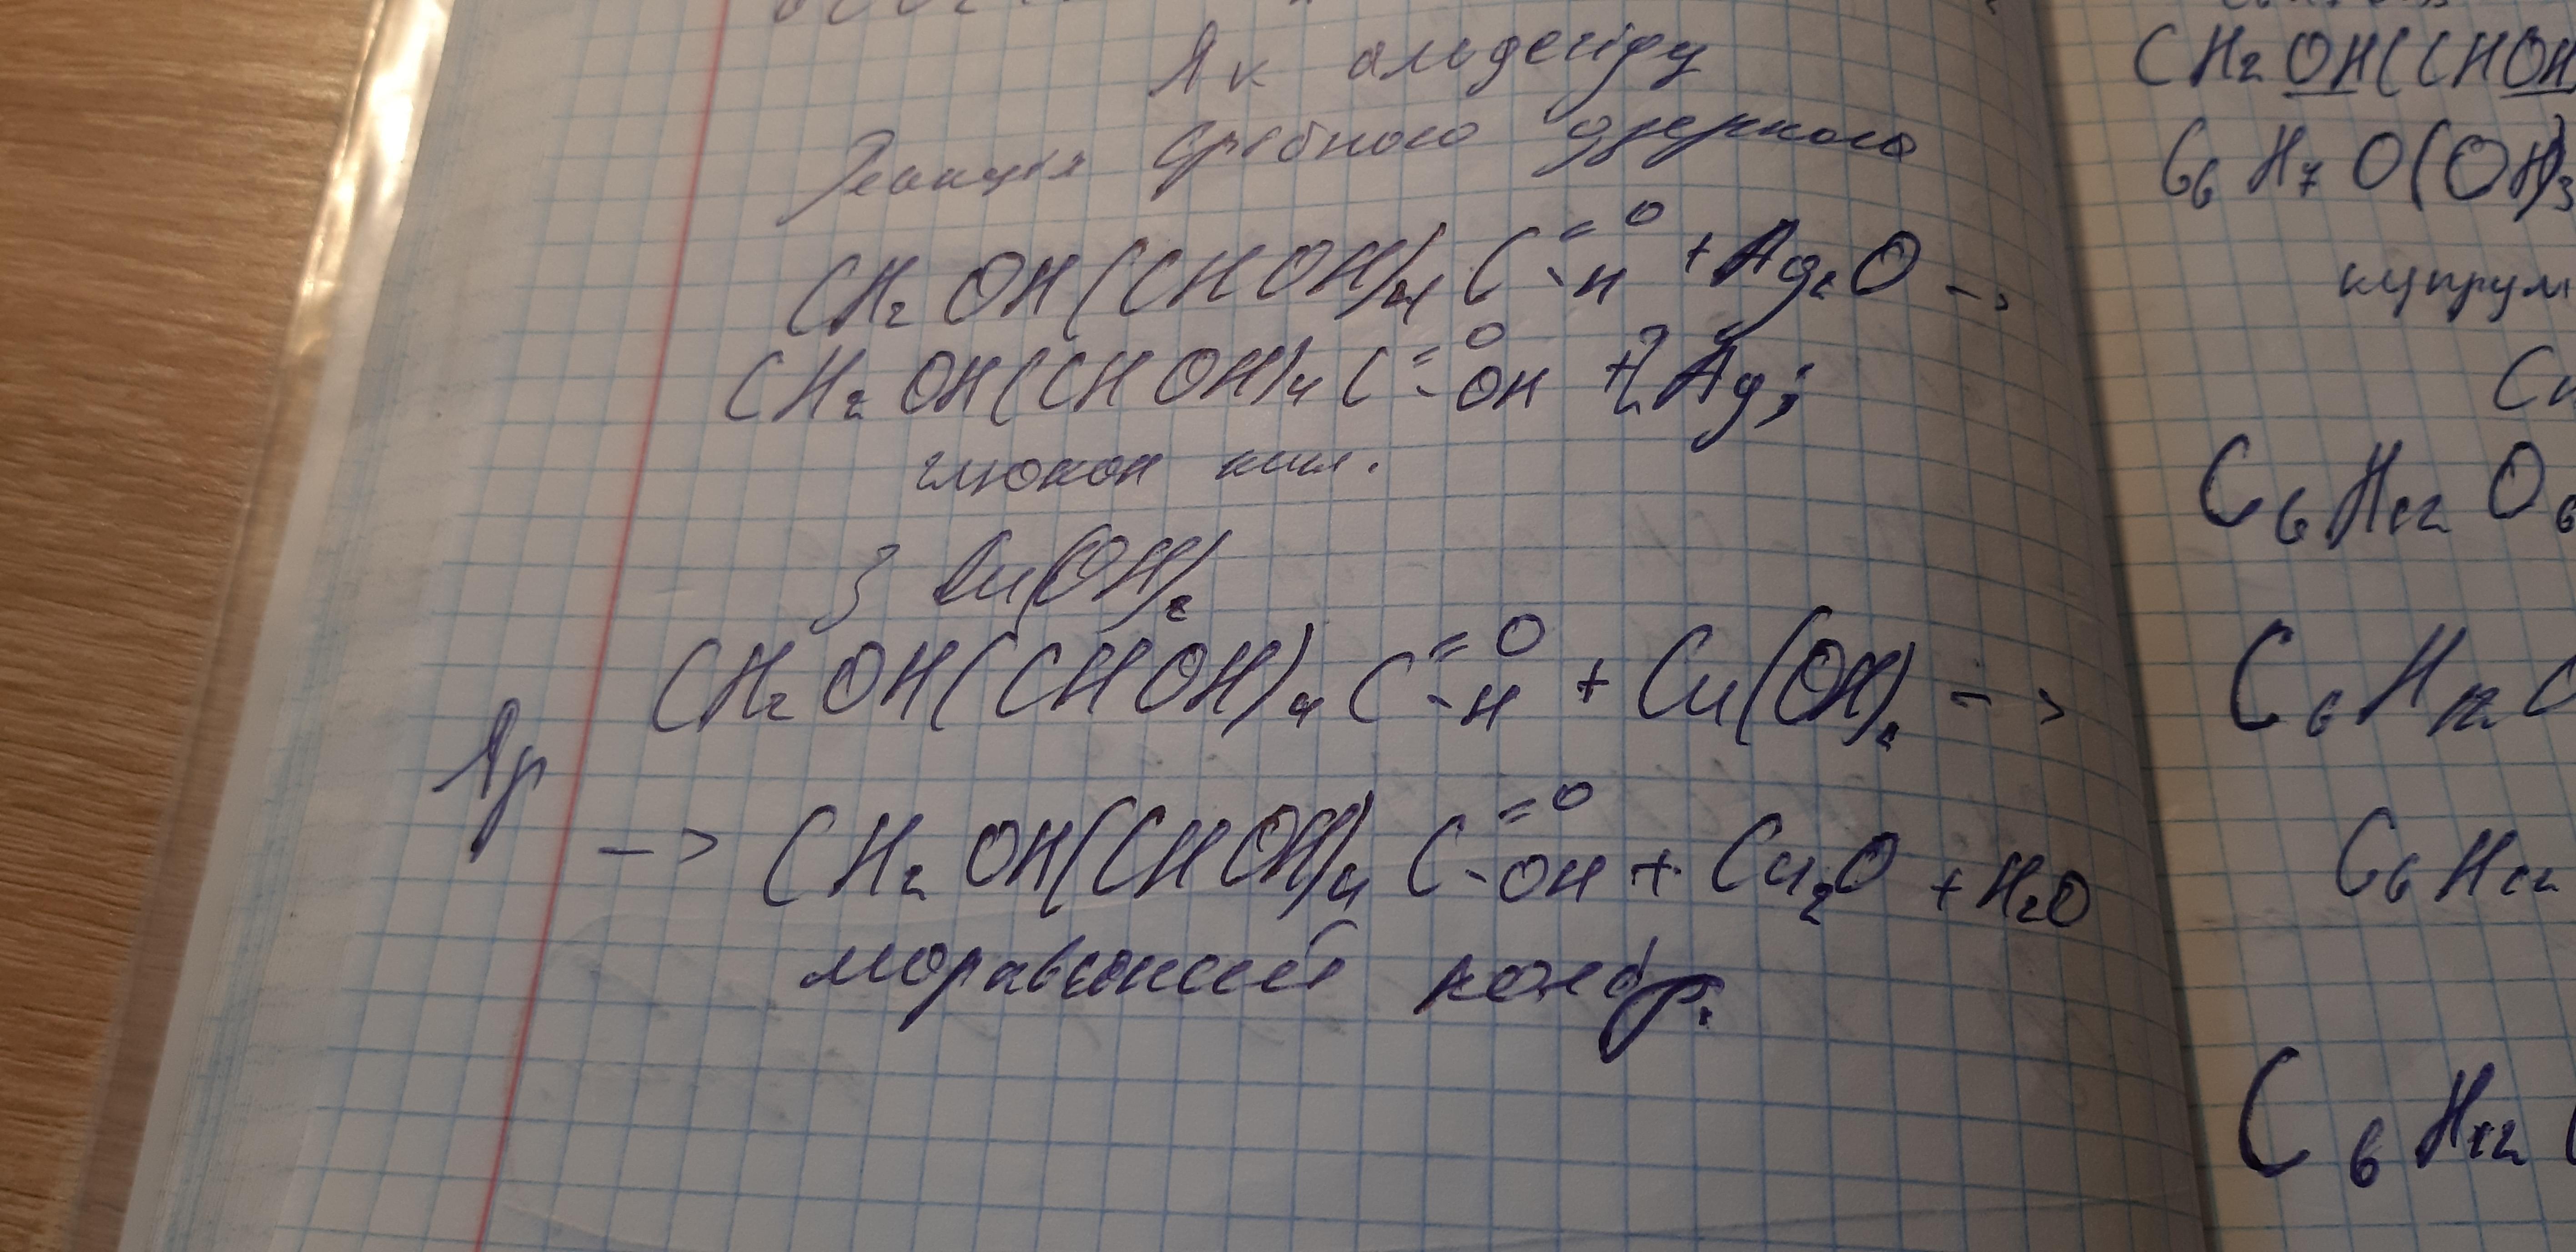 Як альдегіду
Реакція срібного дзеркала
CH₂OH(CHOH)₄C=O-H + Ag₂O ->
CH₂OH(CHOH)₄C=O-OH + 2Ag↓
глюкон кисл.
З Cu(OH)₂
CH₂OH(CHOH)₄C=O-H + Cu(OH)₂ ->
-> CH₂OH(CHOH)₄C=O-OH + Cu₂O + H₂O
CH₂OH(CHOH
C₆H₇O(OH)₃
купрум
C₆H₁₂O₆
C₆H₁₂O
C₆H₁₂
C₆H₁₂